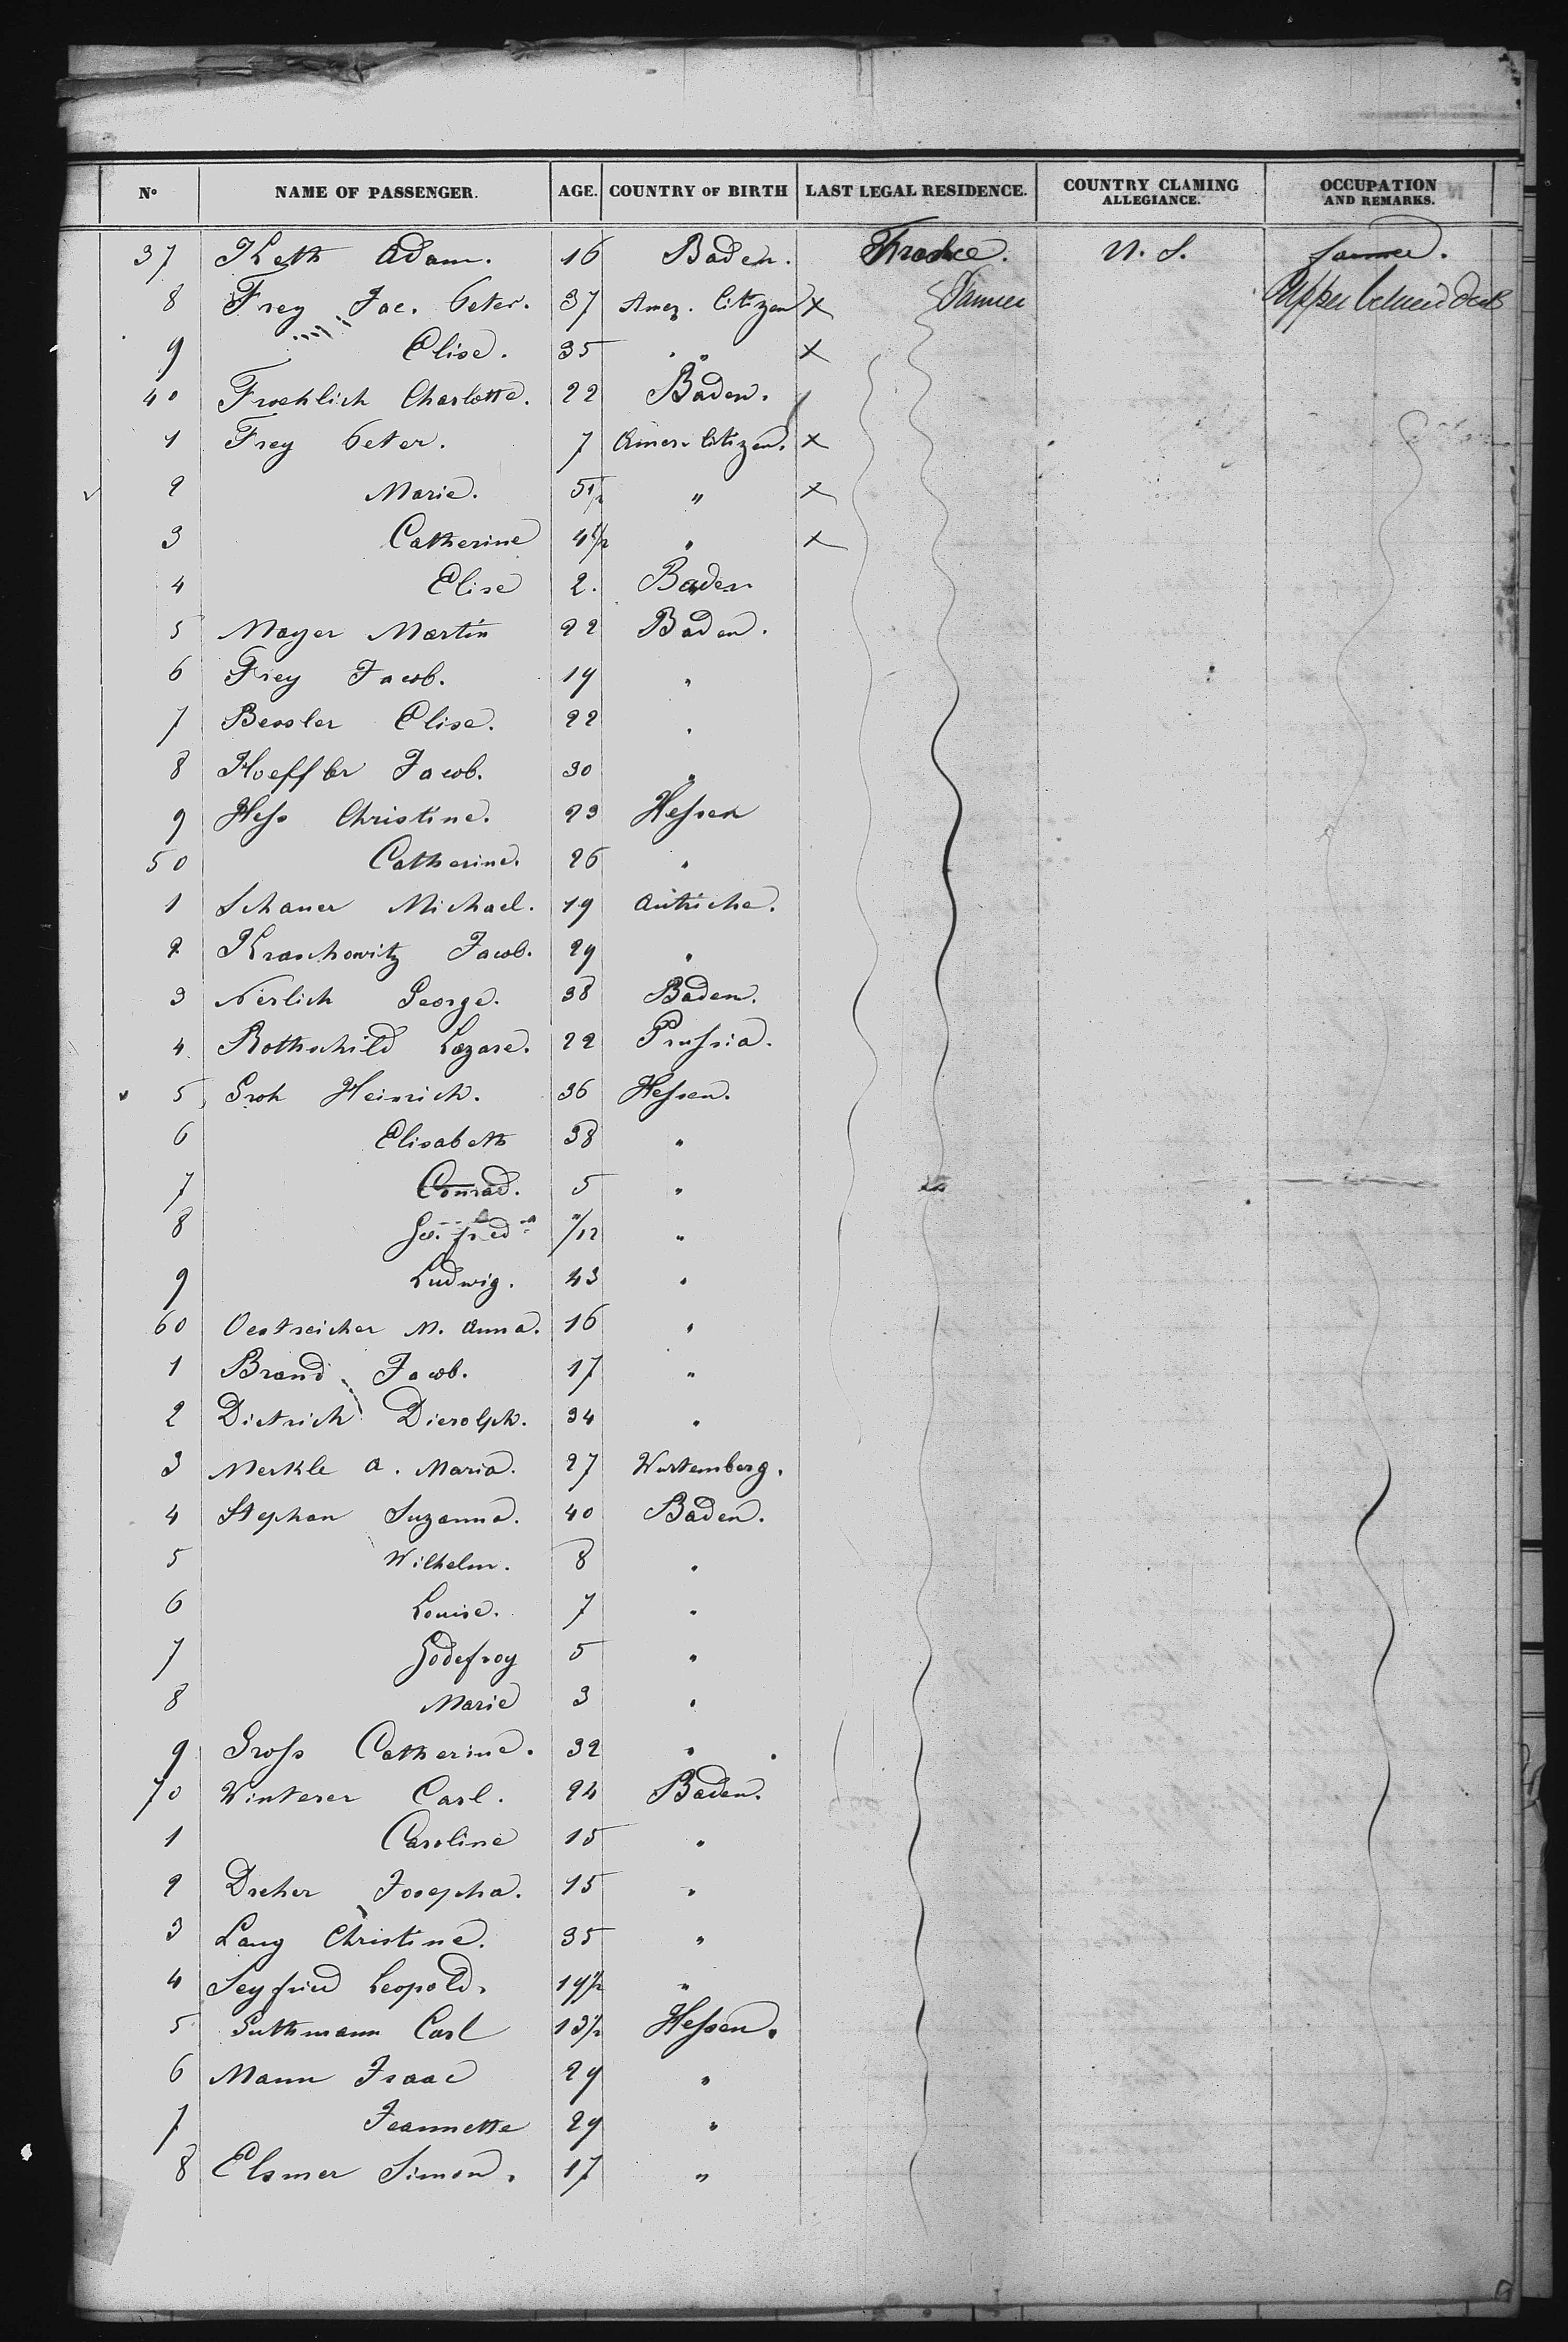 No NAME OF PASSENGER. AGE. COUNTRY OF BIRTH LAST LEGAL RESIDENCE. COUNTRY CLAMING ALLEGIANCE. OCCUPATION AND REMARKS.
37 Keth Adam. 16 Baden. U. S. farmer.
8 Frey Jac. Peter. 37 Amer. Citizen x Upper between Deck
9 Elise. 35 " x
40 Froehlich Charlotte. 22 Baden.
1 Frey Peter. 7 Amer. Citizen. x
2 Marie. 5 1/2 " x
3 Catherine 4 1/2 " x
4 Elise 2. Baden
5 Mayer Martin 22 Baden.
6 Frey Jacob. 19 "
7 Bessler Elise. 22 "
8 Hoeffler Jacob. 30 "
9 Hess Christine. 23 Hessen
50 Catherine. 26 "
1 Schaner Michael. 19 Autriche.
2 Kraschowitz Jacob. 29 "
3 Nerlich George. 38 Baden.
4 Rothschild Lazare. 22 Prussia.
5 Groh Heinrich. 36 Hessen.
6 Elisabeth 38 "
7 Conrad. 5 "
8 /12 "
9 Ludwig. 43 "
60 Oestreicher M. Anna. 16 "
1 Brand Jacob. 17 "
2 Dietrich Dierolph. 34 "
3 Merkle A. Maria. 27 Wurtemberg.
4 Stephan Suzanna. 40 Baden.
5 Wilhelm. 8 "
6 Louise. 7 "
7 Godefroy 5 "
8 Marie 3 "
9 Gross Catherine. 32 "
70 Winterer Carl. 24 Baden.
1 Caroline 15 "
2 Dreher Josepha. 15 "
3 Lang Christine. 35 "
4 Seyfried Leopold. 19 1/2 "
5 Guthmann Carl 13 1/2 Hessen.
6 Mann Isaac 29 "
7 Jeannette 29 "
8 Elsmer Simon. 17 "